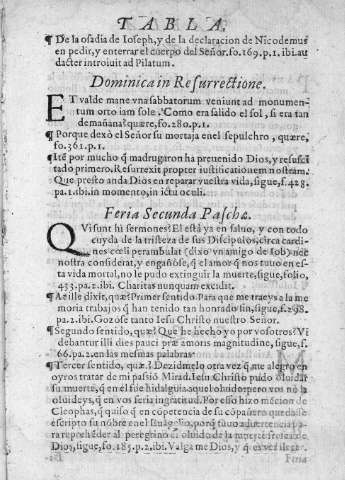 TABLA.
¶ De la osadia de Ioseph, y de la declaracion de Nicodemus
en pedir, y enterrar el cuerpo del Señor. fo. 169. p. 1. ibi. au
dacter introiuit ad Pilatum.
Dominica in Resurrectione.
ET valde mane vna sabbatorum veniunt ad monumen-
tum orto iam sole. Como era salido el sol, si era tan
demañana? quære, fo. 280. p. 1.
¶ Porque dexò el Señor su mortaja en el sepulchro, quære,
fo. 361. p. 1.
¶ Itẽ por mucho q̃ madrugaron ha preuenido Dios, y resusci
tado primero. Resurrexit propter iustificationem nostram.
Que presto anda Dios en reparar vuestra vida, sigue, f. 428.
pa. 2. ibi. in momento, in ictu oculi.
Feria Secunda Paschæ.
QVisunt hi sermones? El està ya en saluo, y con todo
cuyda de la tristeza de sus Discipulos, circa cardi-
nes cœli perambulat (dixo vn amigo de Iob) nec
nostra considerat, y engañose, q̃ el amor q̃ nos tuuo en es-
ta vida mortal, no le pudo extinguir la muerte, sigue, folio,
433. pa. 2. ibi. Charitas nunquam excidit.
¶ At ille dixit, quæ? Primer sentido. Para que me traeys a la me
moria trabajos q̃ han tenido tan honrado fin, sigue, f. 298.
pa. 2. ibi. Gozose tanto Iesu Christo nuestro Señor.
¶ Segundo sentido, quæ? Que he hecho yo por vosotros? Vi
debantur illi dies pauci præ amoris magnitudine, sigue, f.
66. pa. 2. en las mesmas palabras
¶ Tercer sentido, quæ? Dezidmelo otra vez q̃ me alegro en
oyros tratar de mi passiõ. Mirad, Iesu Christo pudo oluidar
su muerte, q̃ en el fue hidalguia aquel oluido; pero vos no la
oluideys, q̃ en vos seria ingratitud. Por esso hizo mẽcion de
Cleophas, q̃ quiso q̃ en
escripto su nõbre en el
ra reprehẽder al peregrino
Dios, sigue, fo. 185. p. 2. ibi. Valga me Dios, y q̃
Feria